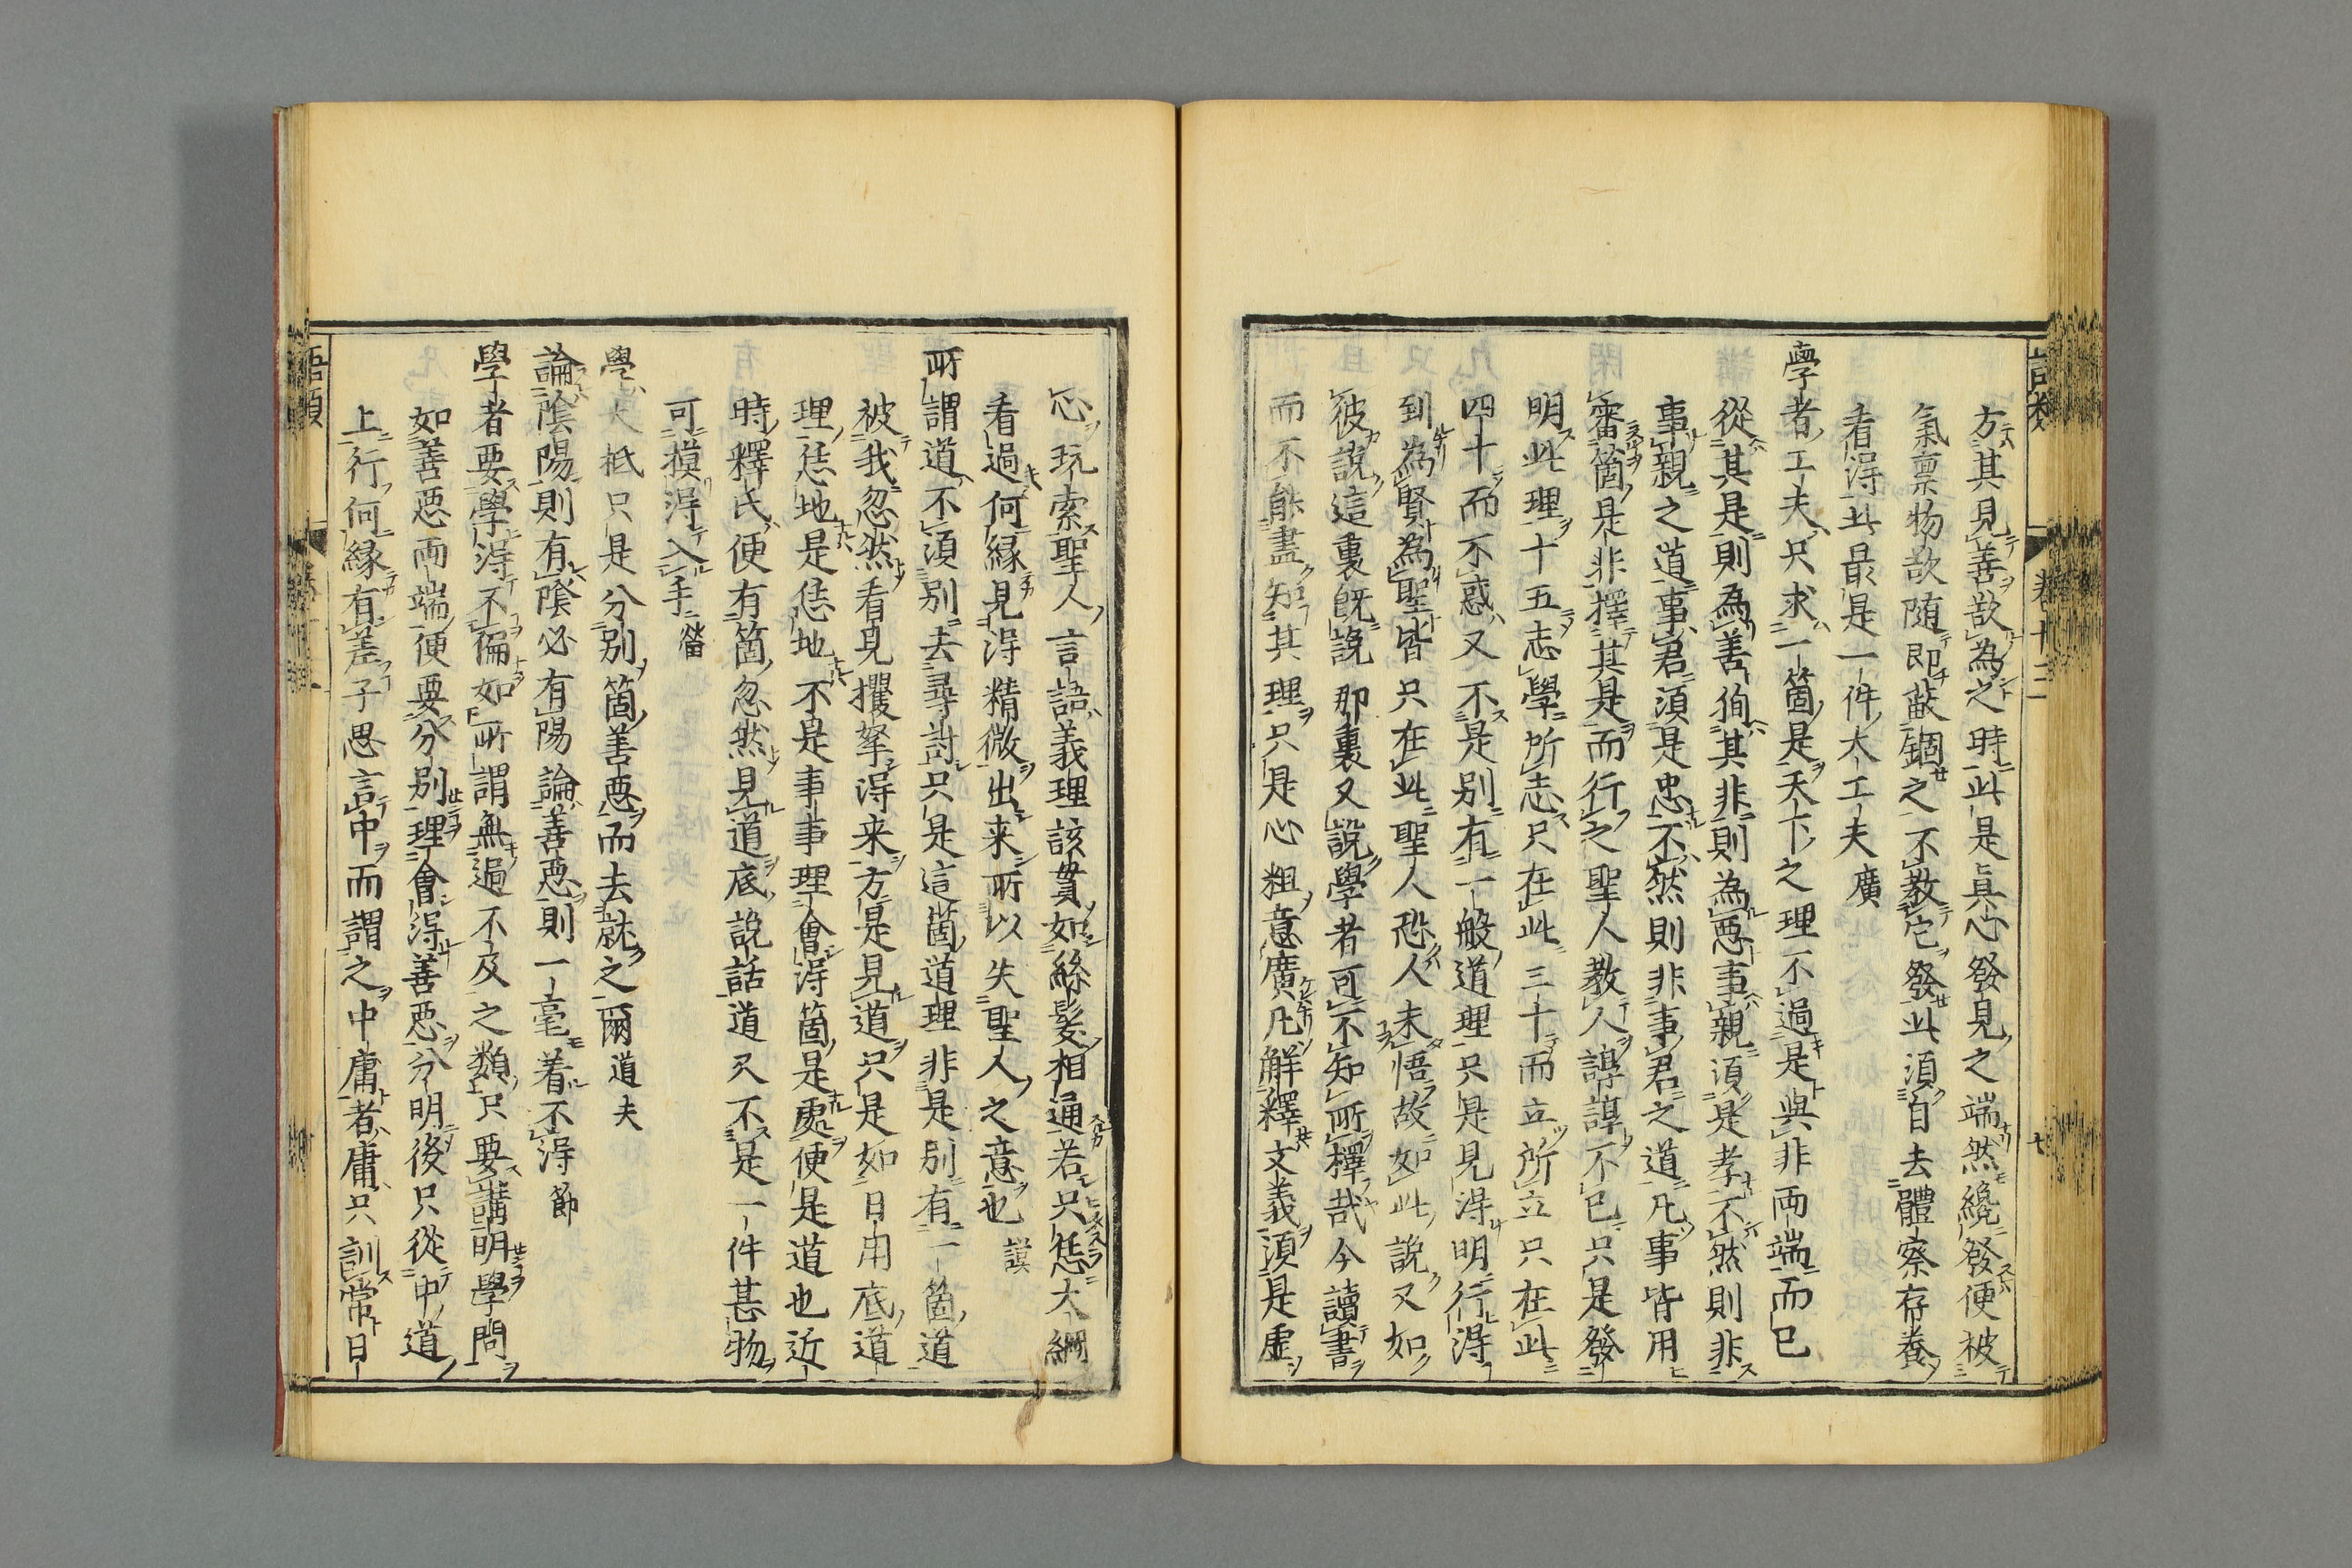 方其見善欲為之時此是眞心發見之端然纔發便被
氣禀物欲隨即蔽錮之不教它發此須自去體察存養
看得此最是一件大工夫廣
學者工夫只求一箇是天下之理不過是與非兩端而已
從其是則為善徇其非則為惡事親須是孝不然則非
事親之道事君須是忠不然則非事君之道凡事皆用
審箇是非擇其是而行之聖人教人諄諄不已只是發
明此理十五志學所志只在此三十而立所立只在此
四十而不惑又不是別有一般道理只是見得明行得
到為賢為聖皆只在此聖人恐人未悟故如此說又如
彼說這裏既說那裏又說學者可不知所擇哉今讀書
而不能盡知其理只是心粗意廣凡解釋文義須是虛
心玩索聖人言語義理該貫如絲髮相通若只恁大綱
看過何緣見得精微出来所以失聖人之意也謨
所謂道不須別去尋討只是這箇道理非是別有一箇道
被我忽然看見攫拏得来方是見道只是如日用底道
理恁地是恁地不是事事理會得箇是處便是道也近
時釋氏便有箇忽然見道底說話道又不是一件甚物
可摸得入手㽦
學大抵只是分別箇善惡而去就之爾道夫
論陰陽則有陰必有陽論善惡則一毫着不得節
學者要學得不偏如所謂無過不及之類只要講明學問
如善惡兩端便要分別理會得善惡分明後只從中道
上行何緣有差子思言中而謂之中庸者庸只訓常日
卷十三
七